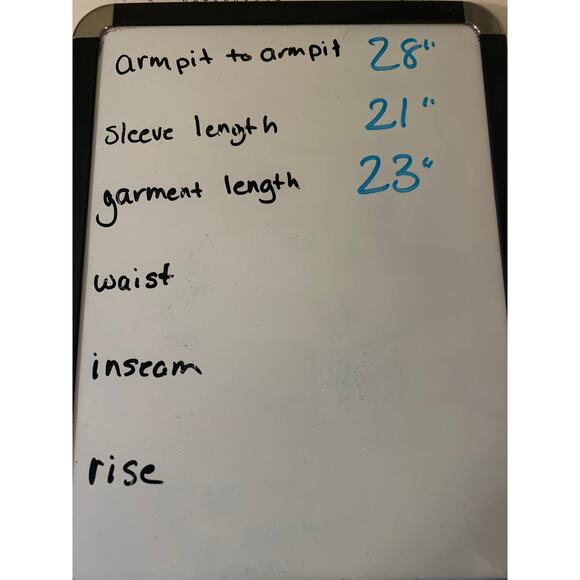 armpit to armpit 28"
sleeve length 21"
garment length 23"
waist
inseam
rise